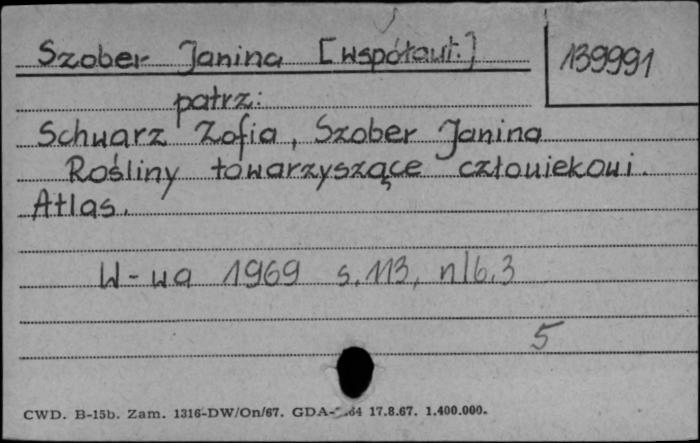 Szober Janina [współaut.] 139991
patrz:
Schwarz Zofia, Szober Janina
Rośliny towarzyszące człowiekowi.
Atlas.
W-wa 1969 s.113, nlb.3
5
CWD. B-15b. Zam. 1316-DW/On/67. 17.8.67. 1.400.000.